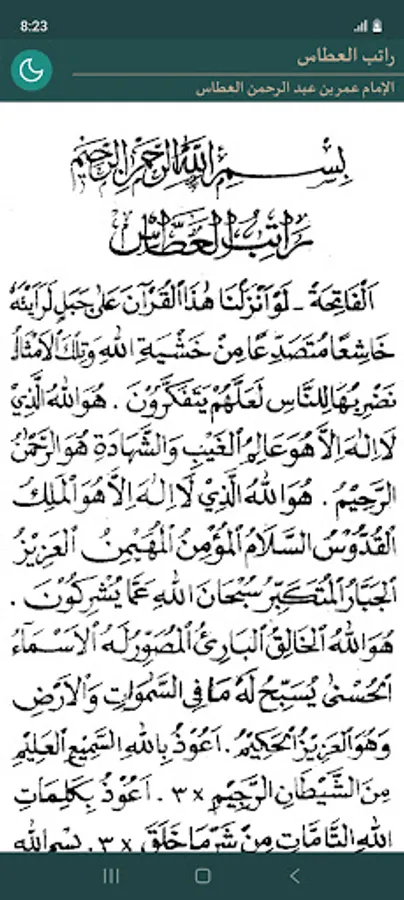 8:23
راتب العطاس
الإمام عمر بن عبد الرحمن العطاس
بِسْمِ اللهِ الرَّحْمٰنِ الرَّحِيْمِ
رَاتِبُ الْعَطَّاسْ
اَلْفَاتِحَةْ - لَوْ اَنْزَلْنَا هٰذَا الْقُرْآنَ عَلىٰ جَبَلٍ لَرَاَيْتَهُ
خَاشِعًا مُتَصَدِّعًا مِنْ خَشْيَةِ اللهِ وَتِلْكَ الْاَمْثَالُ
نَضْرِبُهَا لِلنَّاسِ لَعَلَّهُمْ يَتَفَكَّرُوْنَ . هُوَ اللهُ الَّذِيْ
لَا اِلٰهَ اِلَّا هُوَ عَالِمُ الْغَيْبِ وَالشَّهَادَةِ هُوَ الرَّحْمٰنُ
الرَّحِيْمُ . هُوَ اللهُ الَّذِيْ لَا اِلٰهَ اِلَّا هُوَ الْمَلِكُ
الْقُدُّوْسُ السَّلَامُ الْمُؤْمِنُ الْمُهَيْمِنُ الْعَزِيْزُ
الْجَبَّارُ الْمُتَكَبِّرُ سُبْحَانَ اللهِ عَمَّا يُشْرِكُوْنَ .
هُوَ اللهُ الْخَالِقُ الْبَارِئُ الْمُصَوِّرُ لَهُ الْاَسْمَآءُ
الْحُسْنىٰ يُسَبِّحُ لَهُ مَا فِى السَّمٰوَاتِ وَالْاَرْضِ
وَهُوَ الْعَزِيْزُ الْحَكِيْمُ . اَعُوْذُ بِاللهِ السَّمِيْعِ الْعَلِيْمِ
مِنَ الشَّيْطَانِ الرَّجِيْمِ ×٣ . اَعُوْذُ بِكَلِمَاتِ
اللهِ التَّامَّاتِ مِنْ شَرِّ مَا خَلَقَ ×٣ . بِسْمِ اللهِ